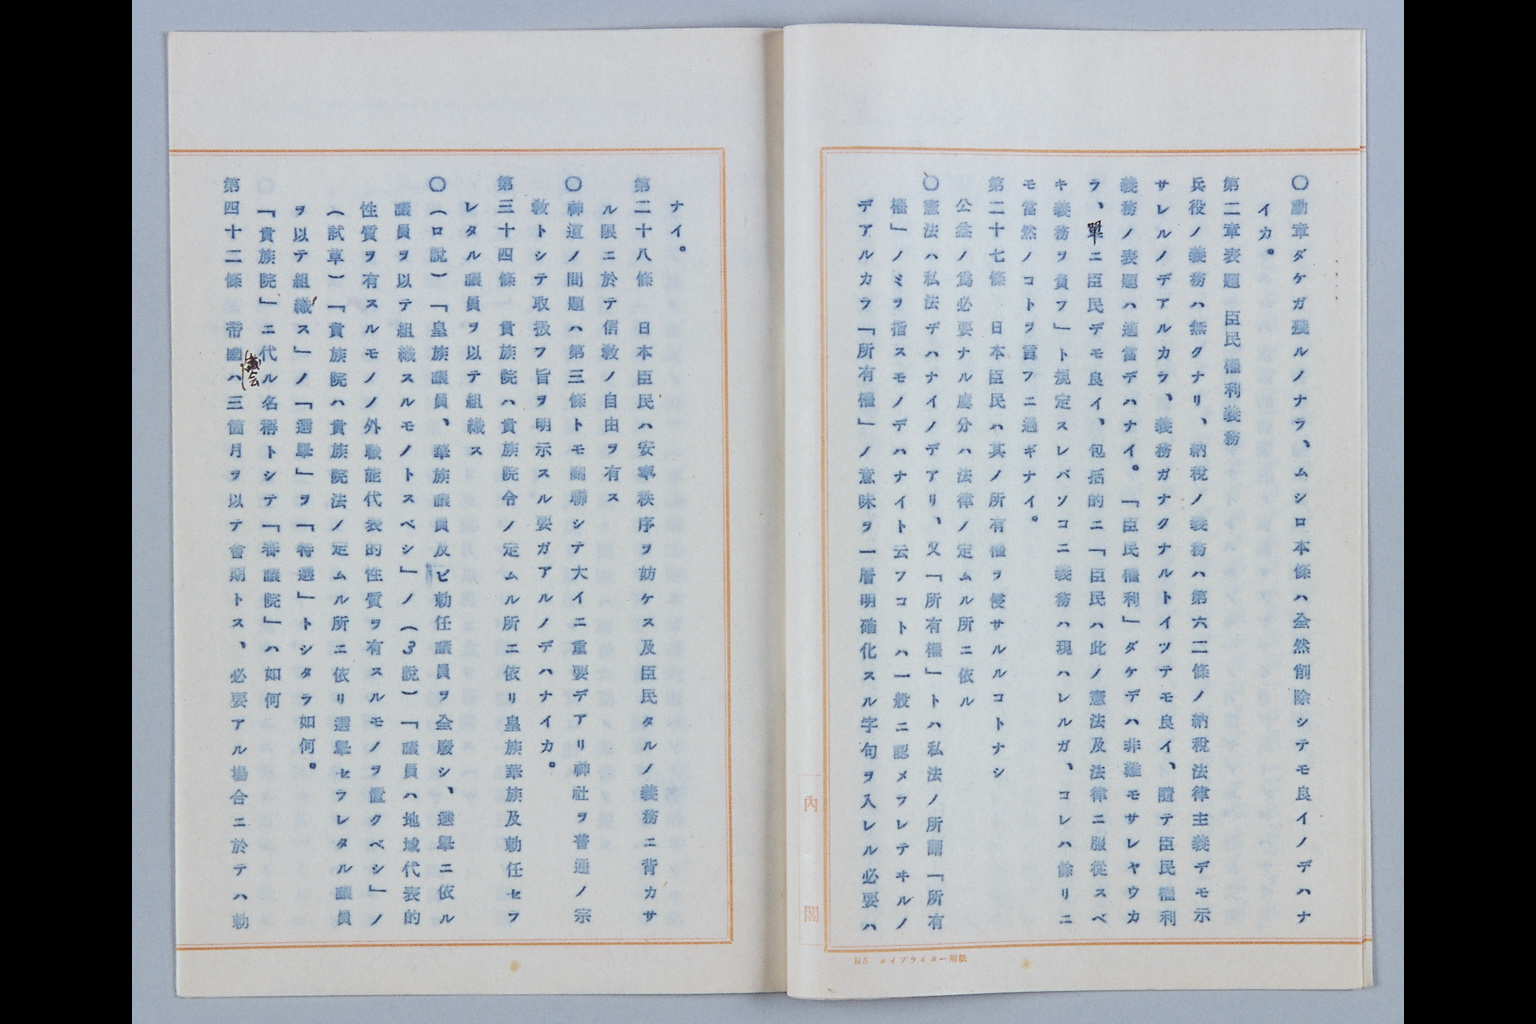 〇勳章ダケガ殘ルノナラ、ムシロ本條ハ全然削除シテモ良イノデハナ
イカ。
第二章表題　臣民權利義務
兵役ノ義務ハ無クナリ、納税ノ義務ハ第六二條ノ納税法律主義デモ示
サレルノデアルカラ、義務ガナクナルトイツテモ良イ、隨テ臣民權利
義務ノ表題ハ適當デハナイ。「臣民權利」ダケデハ非難モサレヤウカ
ラ、單ニ臣民デモ良イ、包括的ニ「臣民ハ此ノ憲法及法律ニ服從スベ
キ義務ヲ負フ」ト規定スレバソコニ義務ハ現ハレルガ、コレハ餘リニ
モ當然ノコトヲ言フニ過ギナイ。
第二十七條　日本臣民ハ其ノ所有權ヲ侵サルルコトナシ
公益ノ爲必要ナル處分ハ法律ノ定ムル所ニ依ル
〇憲法ハ私法デハナイノデアリ、又「所有權」トハ私法ノ所謂「所有
權」ノミヲ指スモノデハナイト云フコトハ一般ニ認メラレテヰルノ
デアルカラ「所有權」ノ意味ヲ一層明確化スル字句ヲ入レル必要ハ
ナイ。
第二十八條　日本臣民ハ安寧秩序ヲ妨ケス及臣民タルノ義務ニ背カサ
ル限ニ於テ信敎ノ自由ヲ有ス
〇神道ノ問題ハ第三條トモ關聯シテ大イニ重要デアリ神社ヲ普通ノ宗
敎トシテ取扱フ旨ヲ明示スル要ガアルノデハナイカ。
第三十四條　貴族院ハ貴族院令ノ定ムル所ニ依リ皇族華族及勅任セラ
レタル議員ヲ以テ組織ス
〇（ロ說）「皇族議員、華族議員及ビ勅任議員ヲ全廢シ、選擧ニ依ル
議員ヲ以テ組織スルモノトスベシ」ノ（3說）「議員ハ地域代表的
性質ヲ有スルモノノ外職能代表的性質ヲ有スルモノヲ置クベシ」ノ
（試草）「貴族院ハ貴族院法ノ定ムル所ニ依リ選擧セラレタル議員
ヲ以テ組織ス」ノ「選擧」ヲ「特選」トシタラ如何。
〇「貴族院」ニ代ル名稱トシテ「審議院」ハ如何
第四十二條　帝國議会ハ三箇月ヲ以テ會期トス、必要アル場合ニ於テハ勅
內閣
B5　タイプライター用紙